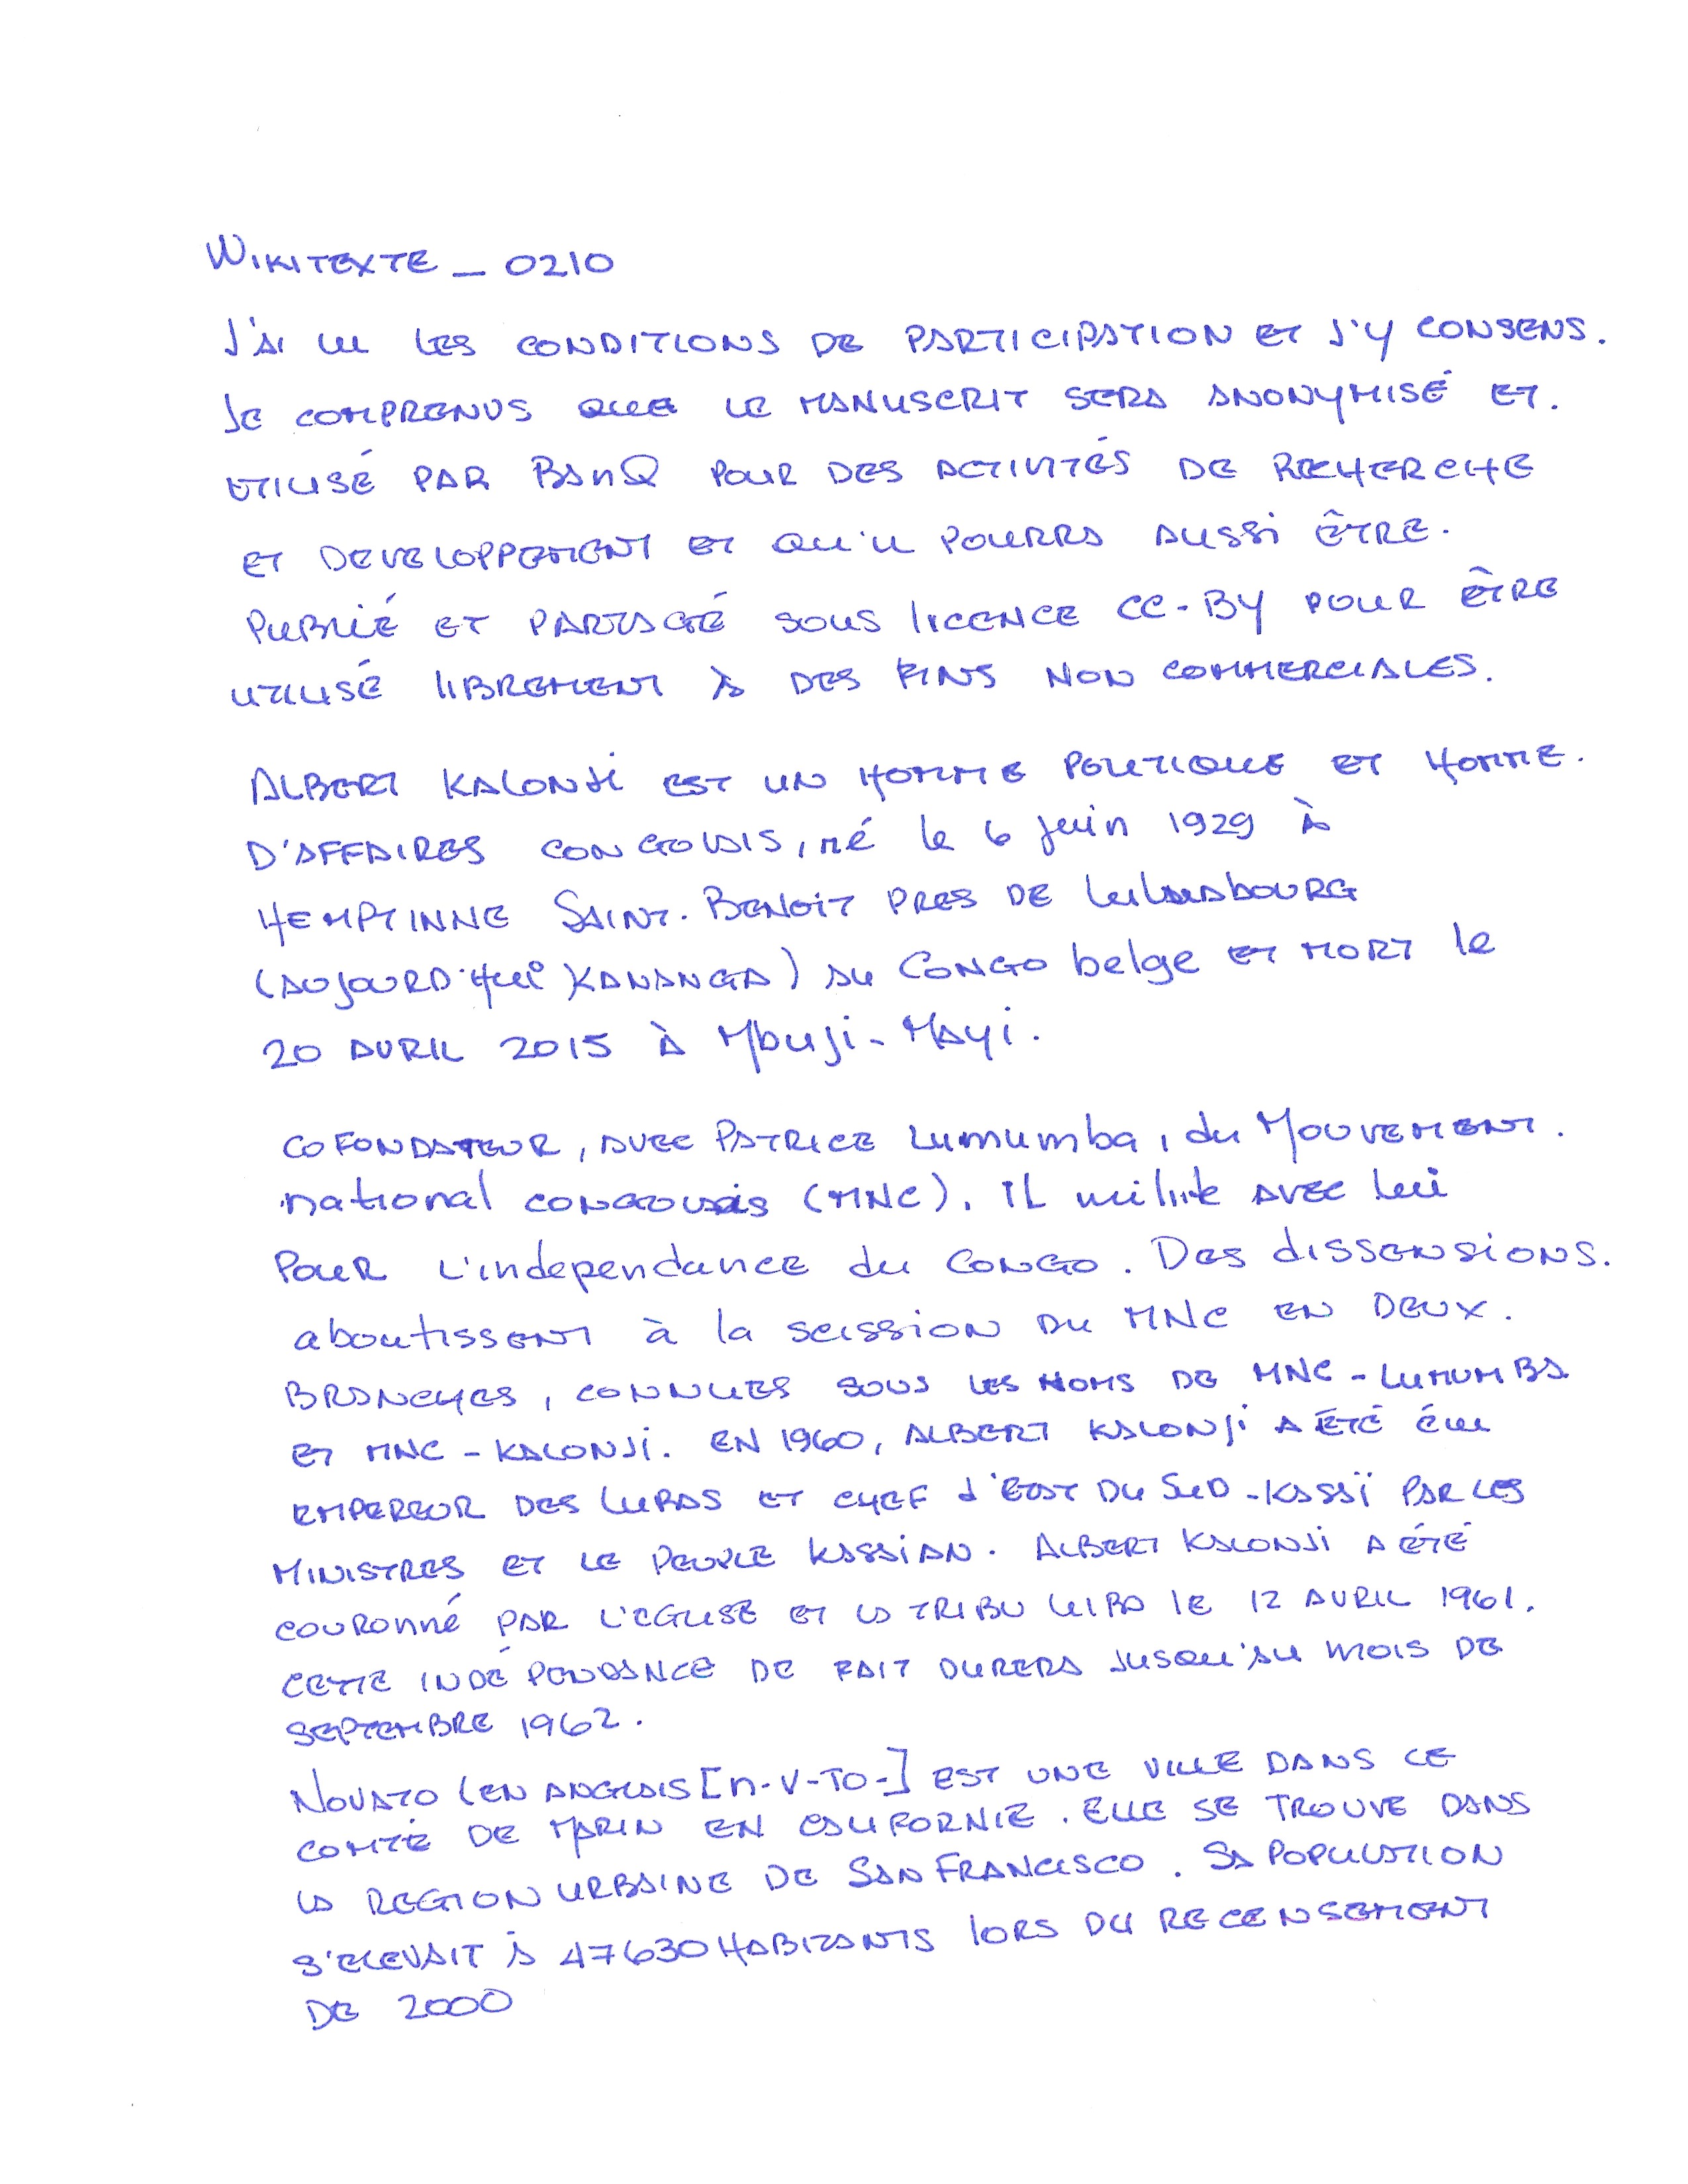 WIKITEXTE _ 0210
J'AI LU LES CONDITIONS DE PARTICIPATION ET J'Y CONSENS.
JE COMPRENDS QUE LE MANUSCRIT SERA ANONYMISÉ ET.
UTILISÉ PAR BAnQ POUR DES ACTIVITÉS DE RECHERCHE
ET DEVELOPPEMENT ET QU'IL POURRA AUSSI ÊTRE.
PUBLIÉ ET PARTAGÉ SOUS LICENCE CC-BY POUR ÊTRE
UTILISÉ LIBREMENT À DES FINS NON COMMERCIALES.
ALBERT KALONJI EST UN HOMME POLITIQUE ET HOMME.
D'AFFAIRES CONGOLAIS, né le 6 juin 1929 À
HEMPTINNE SAINT-BENOIT PRES DE LULUABOURG
(AUJOURD'HUI KANANGA) AU CONGO belge ET MORT le
20 AVRIL 2015 À Mbuji-Mayi.
COFONDATEUR, AVEC PATRICE Lumumba, du MOUVEMENT.
national CONGOLAIS (MNC). IL milite AVEC lui
POUR L'independance du CONGO. Des dissensions.
aboutissent à la scission DU MNC EN DEUX.
BRANCHES, CONNUES SOUS LES NOMS DE MNC-LUMUMBA
ET MNC-KALONJI. EN 1960, ALBERT KALONJI A ÉTÉ ÉLU
EMPEREUR DES LUBAS ET CHEF d'ETAT DU SUD-KASAÏ PAR LES
MINISTRES ET LE PEUPLE KASAIAN. ALBERT KALONJI A ÉTÉ
COURONNÉ PAR L'EGLISE ET LA TRIBU LUBA le 12 AVRIL 1961.
CETTE INDÉPENDANCE DE FAIT DURERA JUSQU'AU MOIS DE
SEPTEMBRE 1962.
NOVATO (EN ANGLAIS [n-V-TO-] EST UNE VILLE DANS LE
COMTÉ DE MARIN EN CALIFORNIE. ELLE SE TROUVE DANS
LA REGION URBAINE DE SAN FRANCISCO. SA POPULATION
S'ELEVAIT À 47630 HABITANTS LORS DU RECENSEMENT
DE 2000